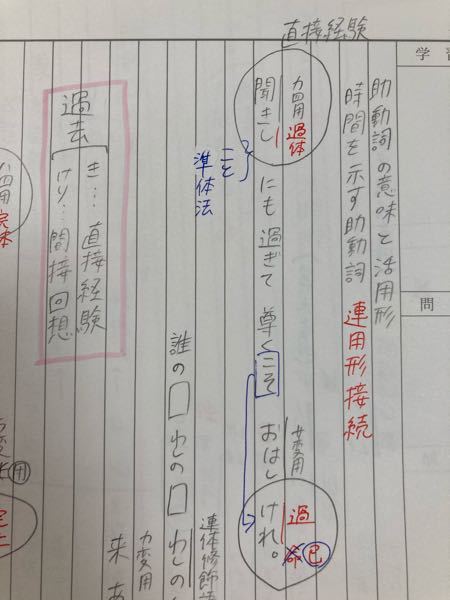 直接経験
学習
問
助動詞の意味と活用形
時間を示す助動詞 連用形接続
カ四用 過体
聞きしにも過ぎて尊くこそおはしけれ。
サ変用
過
命 已
こと
準体法
連体修飾
誰の□ わしの□ わしの
カ変用
来
過去
き…直接経験
けり…間接回想
ハ四用 完体
用